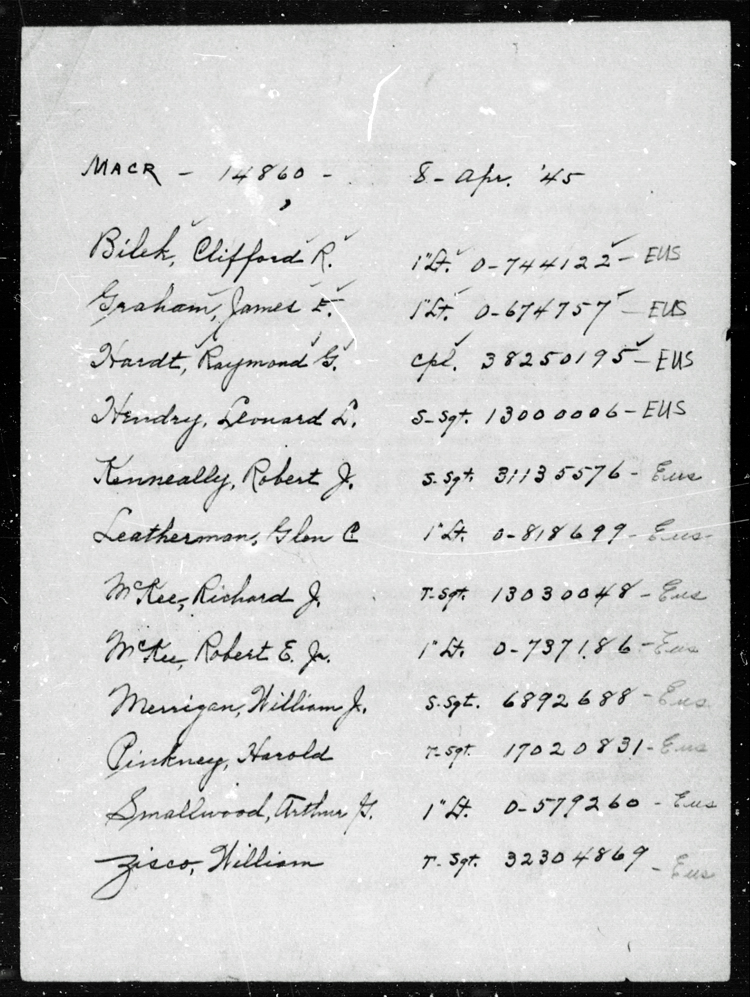 MACR - 14860 - 8- Apr. '45
Bilek, Clifford R. 1"Lt. 0-744122 - EUS
Graham, James E. 1"Lt. 0-674757 - EUS
Hardt, Raymond G. Cpl. 38250195 - EUS
Hendry, Leonard L. S-Sgt. 13000006 - EUS
Kenneally, Robert J. S.Sgt. 31135576 - Eus
Leatherman, Glen C 1"Lt. 0-818699 - Eus
McKee, Richard J. T-Sgt. 13030048 - Eus
McKee, Robert E. Jr. 1"Lt. 0-737186 - Eus
Merrigan, William J. S.Sgt. 6892688 - Eus
Pinkney, Harold T-Sgt 17020831 - Eus
Smallwood, Arthur G. 1"Lt. 0-579260 - Eus
Zisco, William T-Sgt. 32304869 - Eus